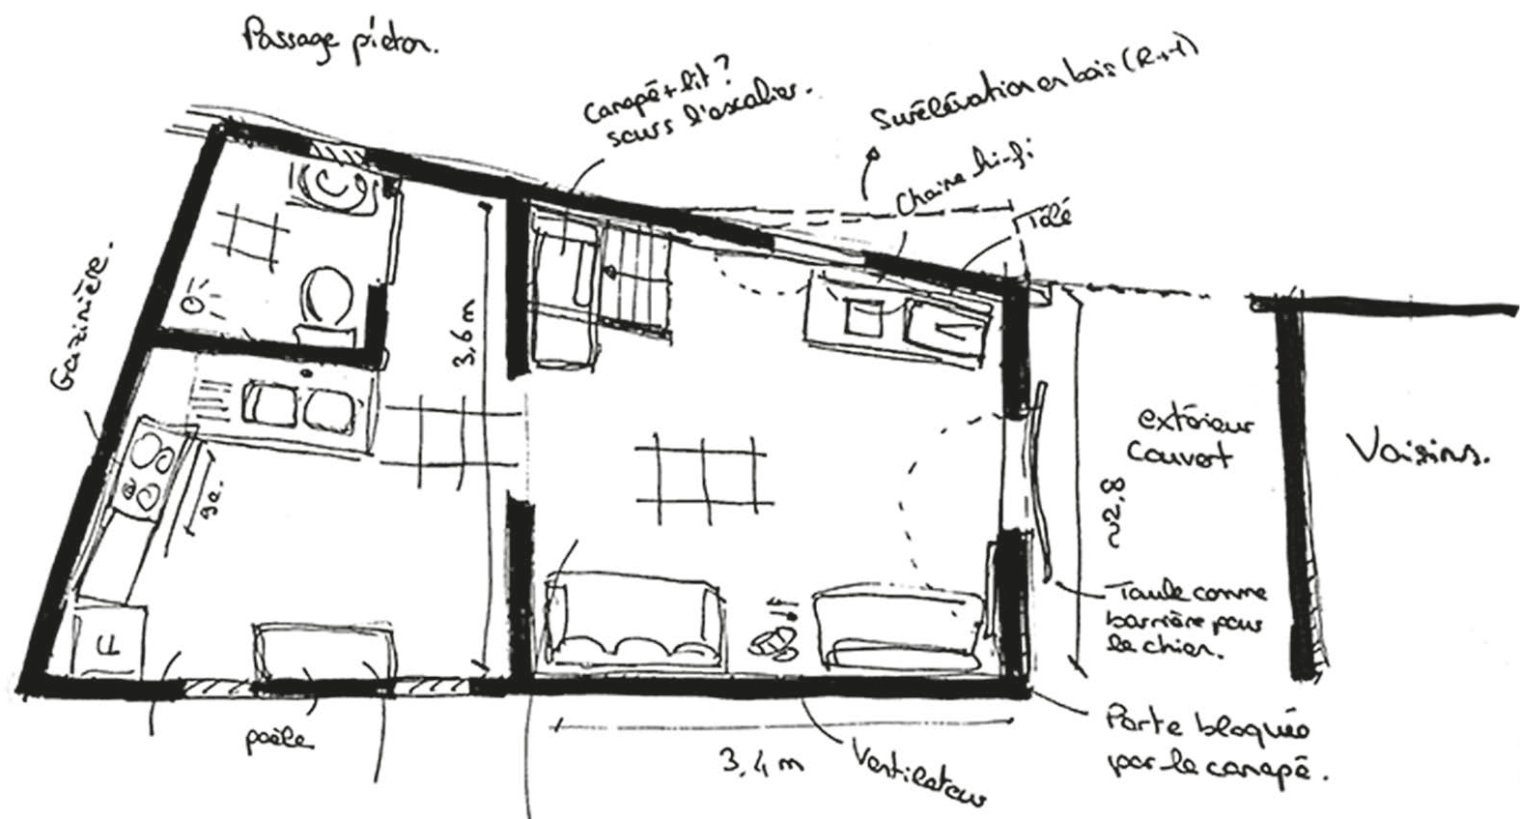 Passage piéton.
Canapé + lit ?
sous l'escalier.
Surélévation en bois (R+1)
Chaîne hi-fi
Télé
Gazinière.
3,6 m
90.
F
extérieur
couvert
Voisins.
~2,8
Taule comme
barrière pour
le chien.
Porte bloquée
par le canapé.
poêle
3,4 m
Ventilateur